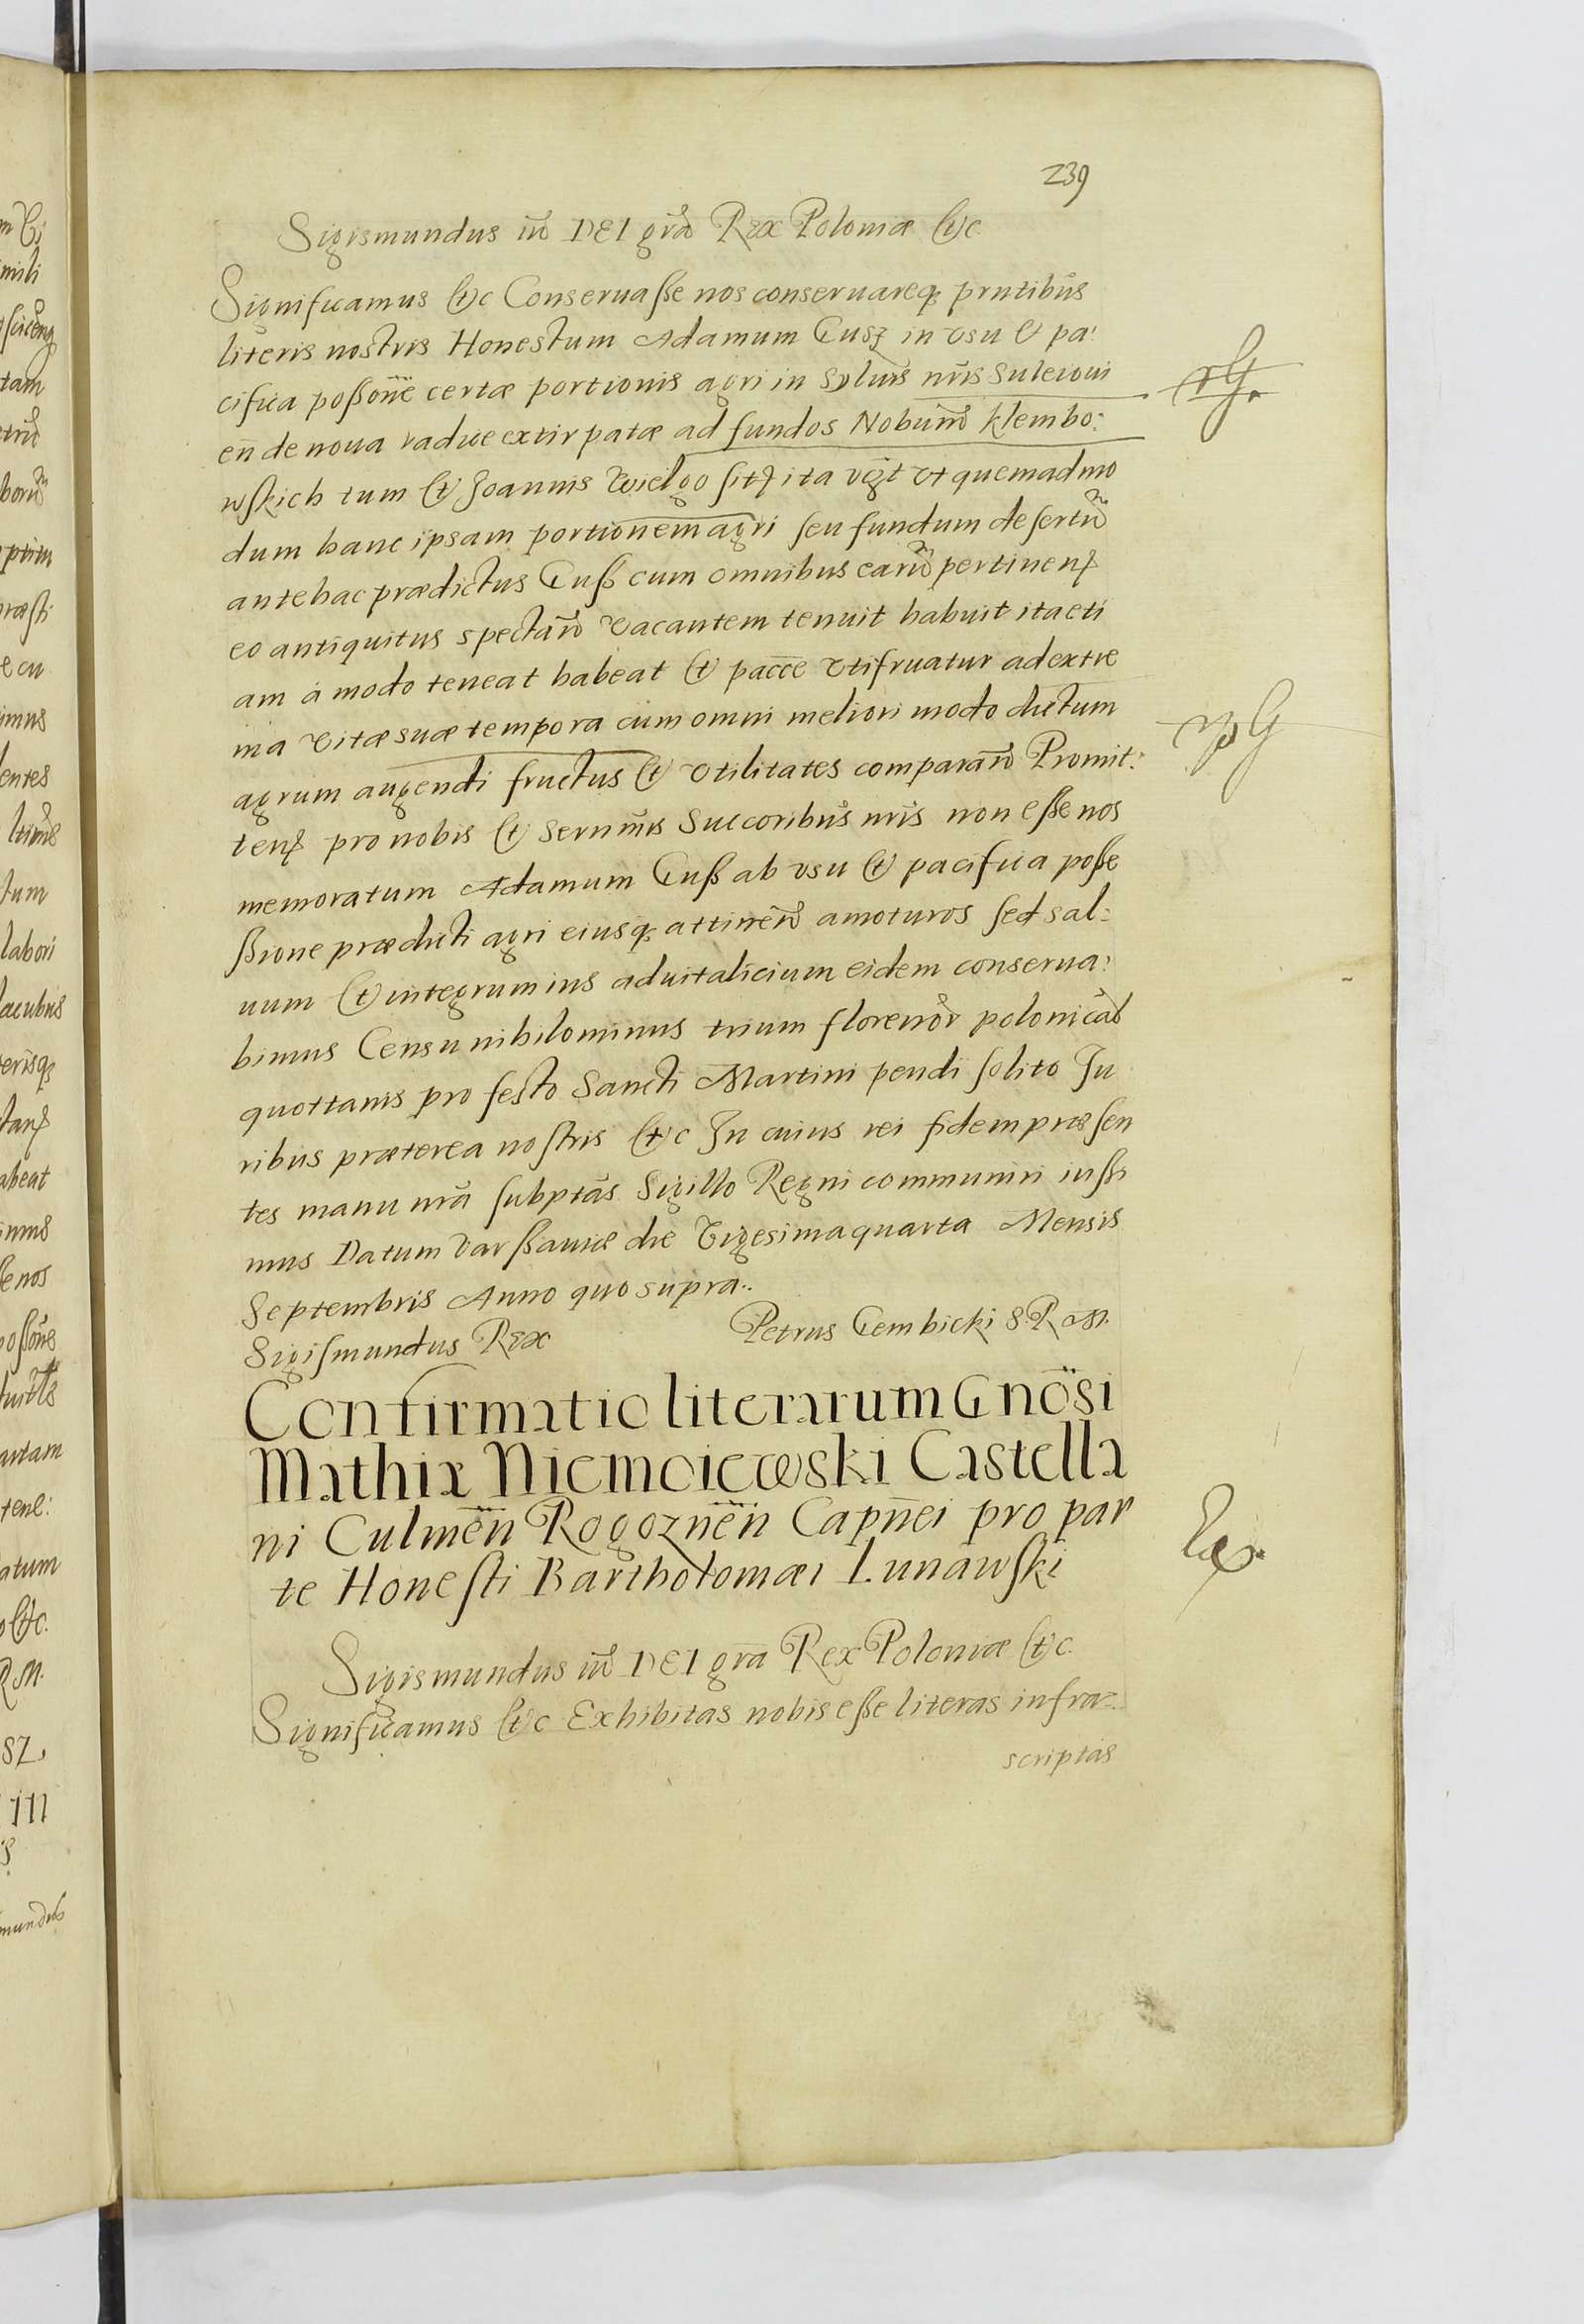 239
Sigismundus iii DEI gra Rex Poloniæ &c
Significamus &c Conseruasse nos conseruareq prntibus
literis nostris Honestum Adamum Gusz in vsu & pa:
cifica possone certæ portionis agri in Syluis nris Suleiowi
en de noua radice extirpatæ ad fundos Nobium Klembo:
wskich tum & Joannis Wielgo sit ita vgt vt quemadmo
dum hanc ipsam portionem agri seu fundum desertu
antehac prædictus Guss cum omnibus earu pertinen
eo antiquitus spectan vacantem tenuit habuit ita eti
am à modo teneat habeat & pacce vtifruatur ad extre
ma vitæ suæ tempora cum omni meliori modo dictum
agrum augendi fructus & vtilitates comparan Promit:
ten pro nobis & Sernmis Succoribus nris non esse nos
memoratum Adamum Guss ab vsu & pacifica posse
ssione prædicti agri eiusq attinen amoturos sed sal:
uum & integrum ius aduitalicium eidem conserua:
bimus Censu nihilominus trium florenor polonical
quottanis pro festo Sancti Martini pendi solito Ju
ribus præterea nostris &c In cuius rei fidem præsen
tes manu nra subptas Sigillo Regni communiri iussi
mus Datum Varssauiæ die Vigesimaquarta Mensis
Septembris Anno quo supra..
Sigismundus Rex Petrus Gembicki S. R. M.
Confirmatio literarum Gnosi
Mathiæ Niemoiewski Castella
ni Culmen Rogoznen Capnei pro par
te Honesti Bartholomæi Lunawski
Sigismundus iii DEI gra Rex Poloniæ &c.
Significamus &c Exhibitas nobis esse literas infra-
scriptas